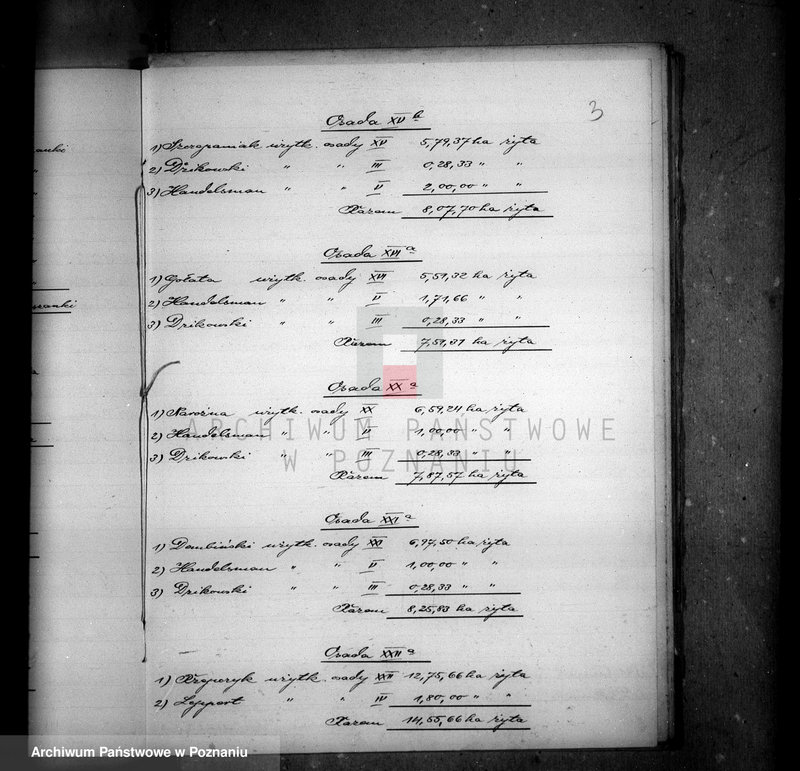 3
Osada XV b
1) Szczepaniak użytk. osady XV 5,79,37 ha żyta
2) Drikowski " " III 0,28,33 " "
3) Handelsman " " V 2,00,00 " "
Razem 8,07,70 ha żyta
Osada XVI a
1) Gołata użytk. osady XVI 5,51,32 ha żyta
2) Handelsman " " V 1,71,66 " "
3) Drikowski " " III 0,28,33 " "
Razem 7,51,31 ha żyta
Osada XX a
1) Nawoźna użytk. osady XX 6,59,24 ha żyta
2) Handelsman " " V 1,00,00 " "
ARCHIWUM PAŃSTWOWE
3) Drikowski " " III 0,28,33 " "
W POZNANIU
Razem 7,87,57 ha żyta
Osada XXI a
1) Dembiński użytk. osady XXI 6,97,50 ha żyta
2) Handelsman " " V 1,00,00 " "
3) Drikowski " " III 0,28,33 " "
Razem 8,25,83 ha żyta
Osada XXII a
1) użytk. osady XXII 12,75,66 ha żyta
2) Leppert " " IV 1,80,00 " "
Razem 14,55,66 ha żyta
Archiwum Państwowe w Poznaniu